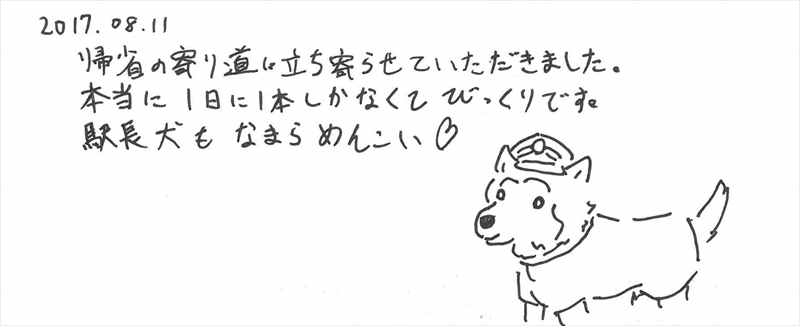 2017.08.11
帰省の寄り道に立ち寄らせていただきました。
本当に1日に1本しかなくてびっくりです。
駅長犬もなまらめんこい♡